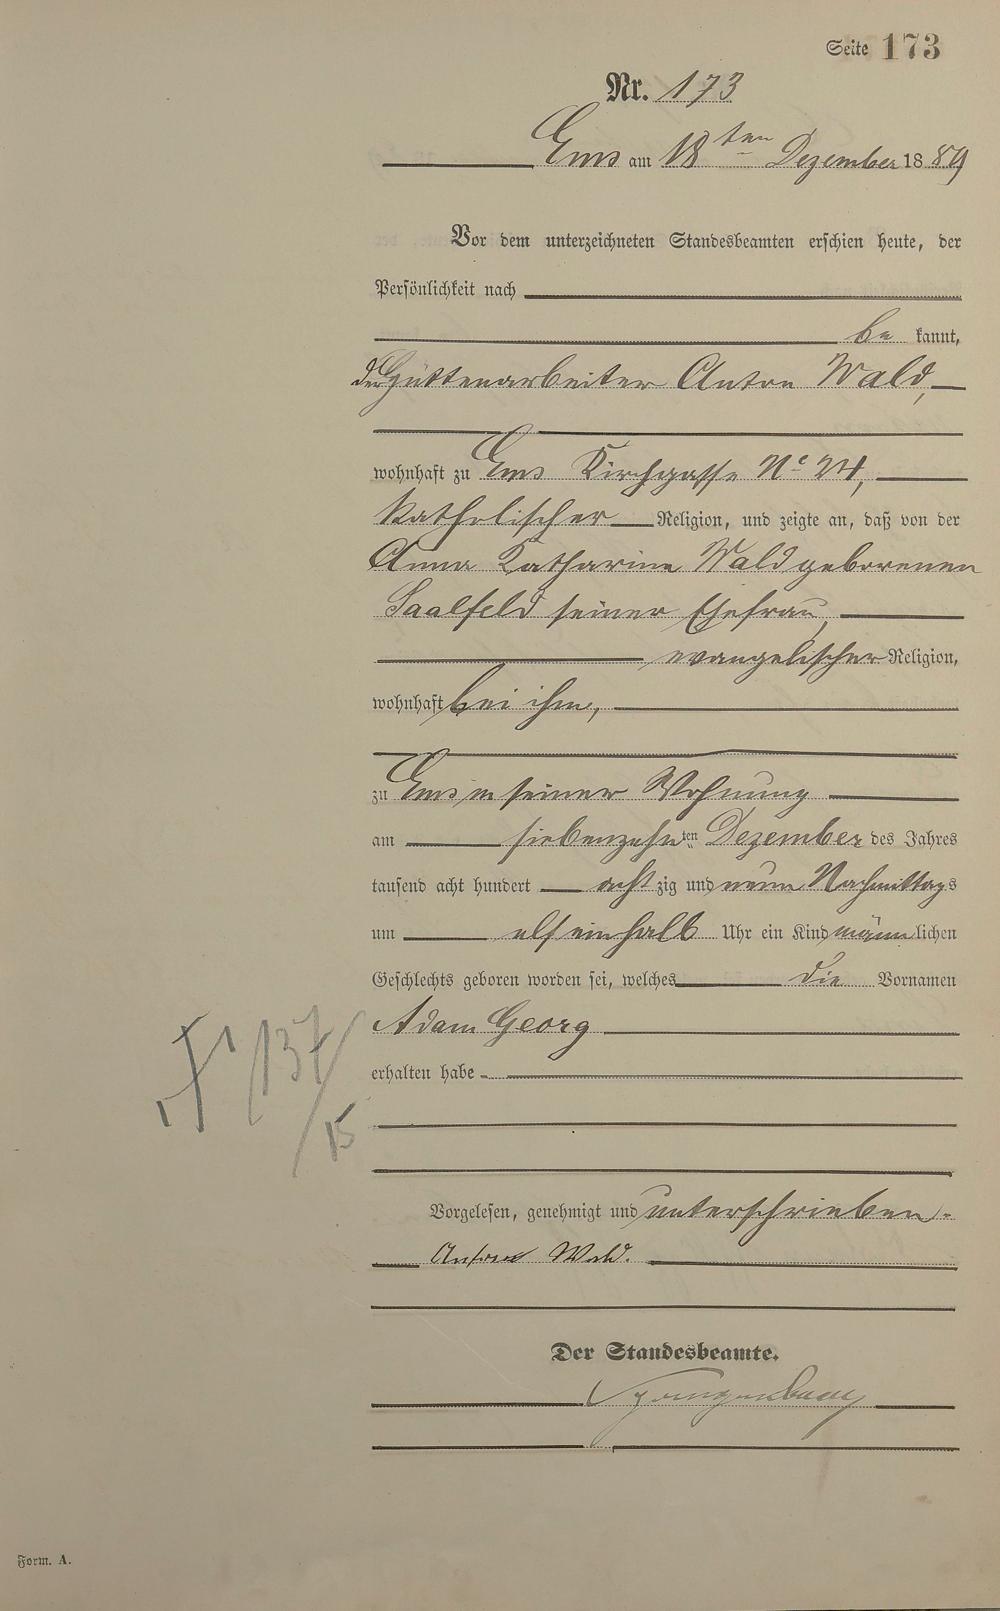 Seite 173
Nr. 173
Ems am 18ten Dezember 1889
Vor dem unterzeichneten Standesbeamten erschien heute, der
Persönlichkeit nach
be kannt,
der Hüttenarbeiter Anton Wald,
wohnhaft zu Ems Kirchgasse No 24,
katholischer Religion, und zeigte an, daß von der
Anna Katharina Wald geborenen
Saalfeld seiner Ehefrau,
evangelischer Religion,
wohnhaft bei ihm,
zu Ems in seiner Wohnung
am siebenzehnten Dezember des Jahres
tausend acht hundert achtzig und neun Nachmittags
um elf ein halb Uhr ein Kind männlichen
Geschlechts geboren worden sei, welches die Vornamen
Adam Georg
erhalten habe
137
15
Vorgelesen, genehmigt und unterschrieben.
Anton Wald.
Der Standesbeamte.
Form. A.